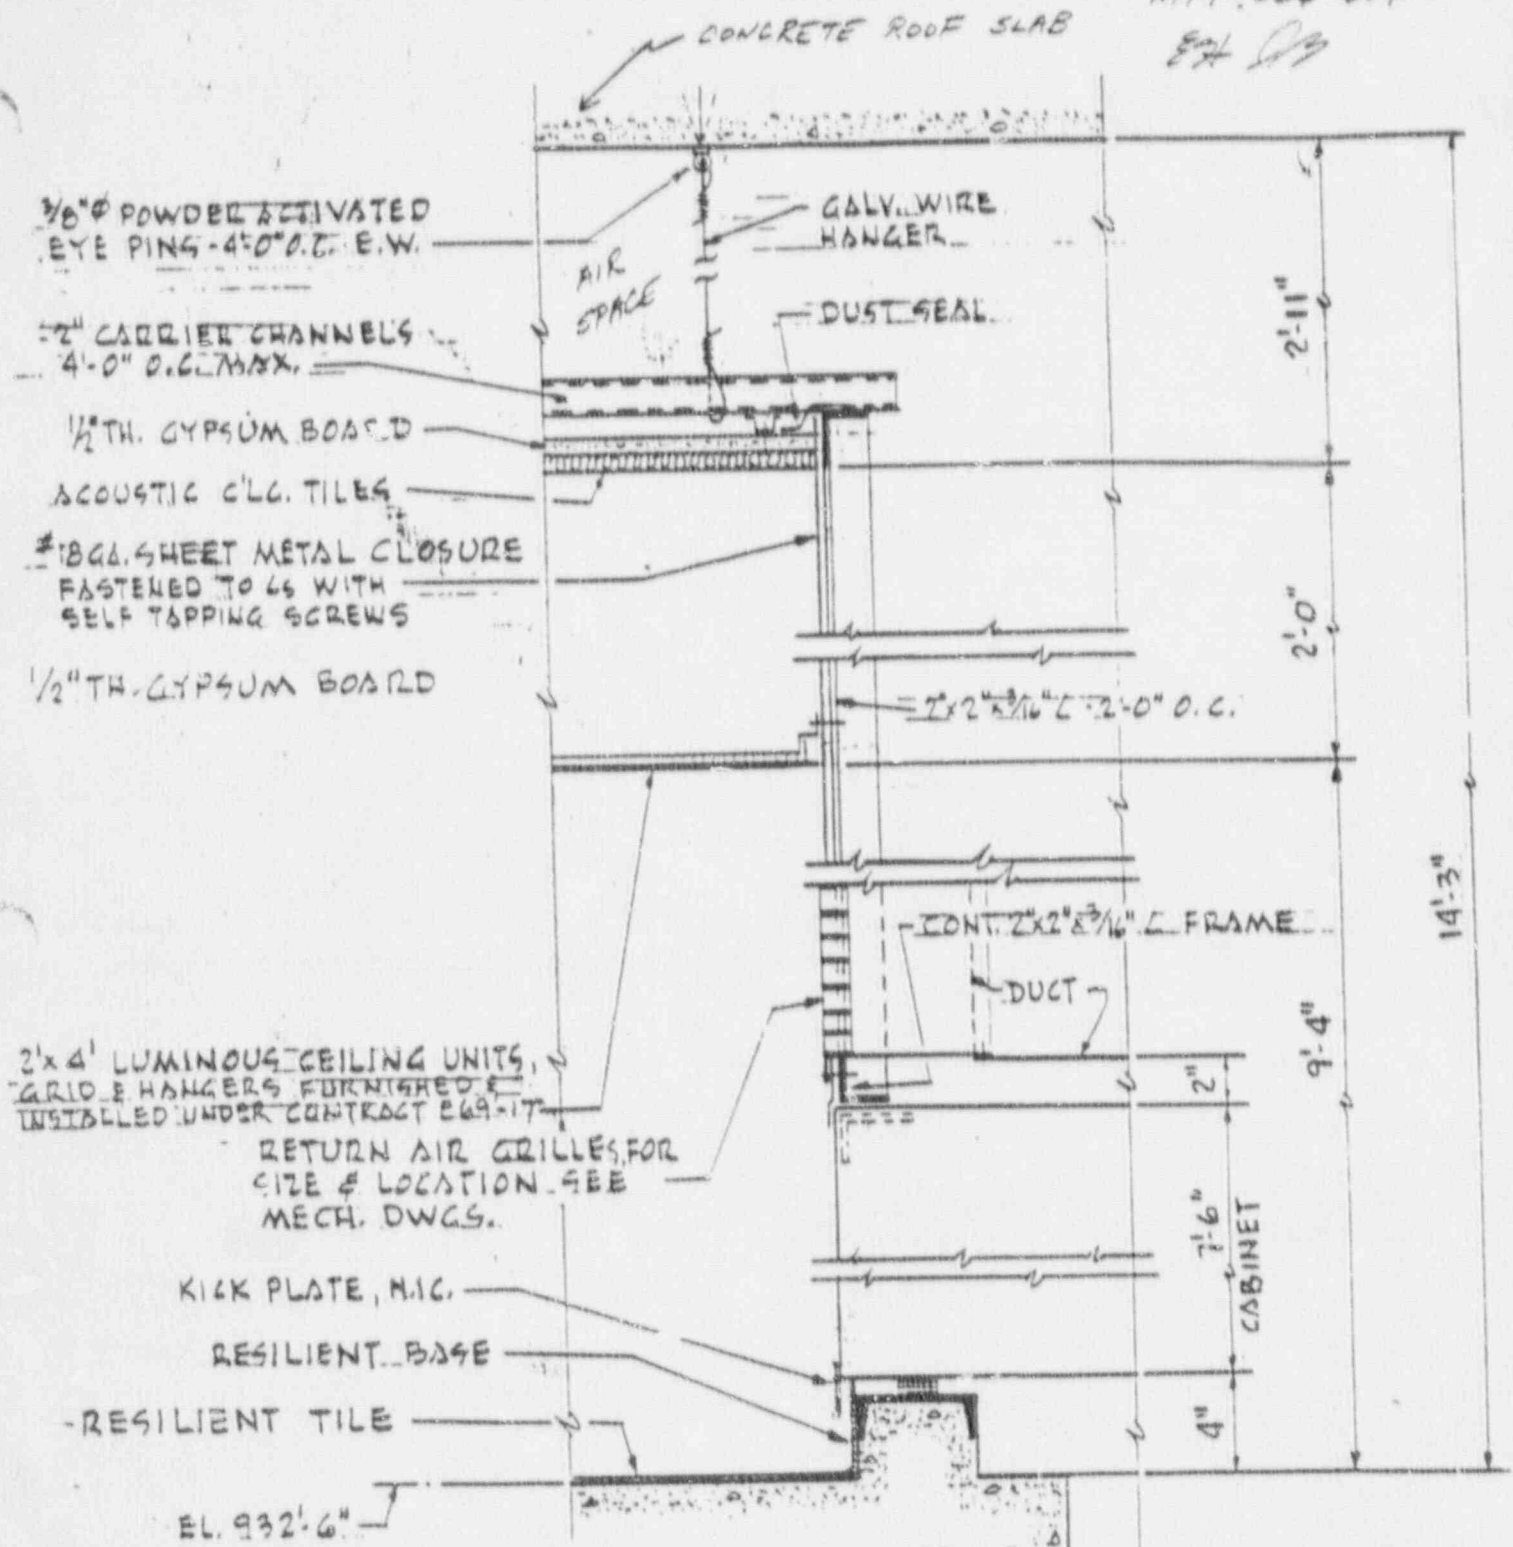 CONCRETE ROOF SLAB
3/8"Ø POWDER ACTIVATED
EYE PINS - 4'-0" O.C. E.W.
GALV. WIRE
HANGER
AIR
SPACE
DUST SEAL
2" CARRIER CHANNELS
4'-0" O.C. MAX.
1/2" TH. GYPSUM BOARD
ACOUSTIC C'LG. TILES
#18 GA. SHEET METAL CLOSURE
FASTENED TO Ls WITH
SELF TAPPING SCREWS
1/2" TH. GYPSUM BOARD
2"x2"x3/16" L - 2'-0" O.C.
CONT. 2"x2"x3/16" L FRAME
DUCT
2'x4' LUMINOUS CEILING UNITS,
GRID & HANGERS FURNISHED &
INSTALLED UNDER CONTRACT E69-17
RETURN AIR GRILLES, FOR
SIZE & LOCATION SEE
MECH. DWGS.
KICK PLATE, N.I.C.
RESILIENT BASE
RESILIENT TILE
EL. 932'-6"
2'-11"
2'-0"
9'-4"
14'-3"
2"
7'-6"
CABINET
4"